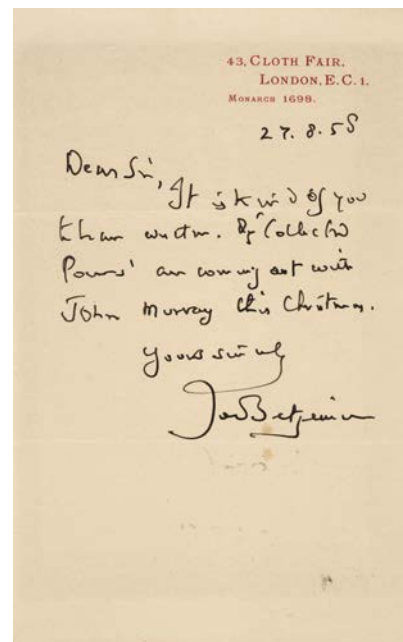 43, CLOTH FAIR,
LONDON, E.C.1.
MONARCH 1698.
27.8.58
Dear Sir,
It is kind of you
to have written. My 'Collected
Poems' are coming out with
John Murray this Christmas.
Yours sincerely
John Betjeman